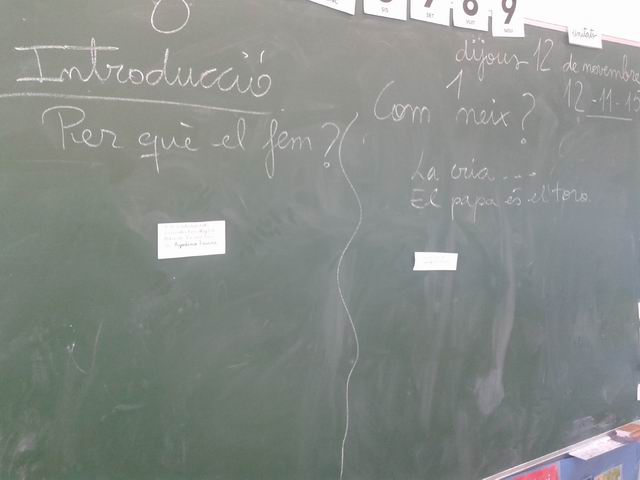 SIS
SET
8
VUIT
9
NOU
unitats
Introducció
Per què el fem?
dijous 12 de novembre
12-11-15
1
Com neix?
La cria...
El papa és el toro.